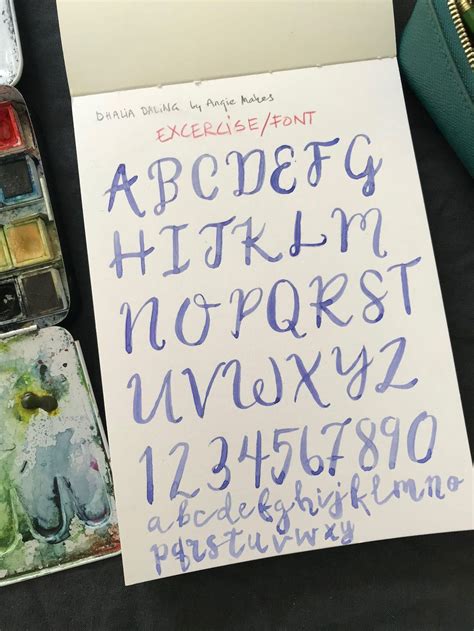 DHALIA DALING by Angie Makes
EXCERCISE/FONT
ABCDEFG
HIJKLM
NOPQRST
UVWXYZ
1234567890
abcdefghijklmno
pqrstuvwxy